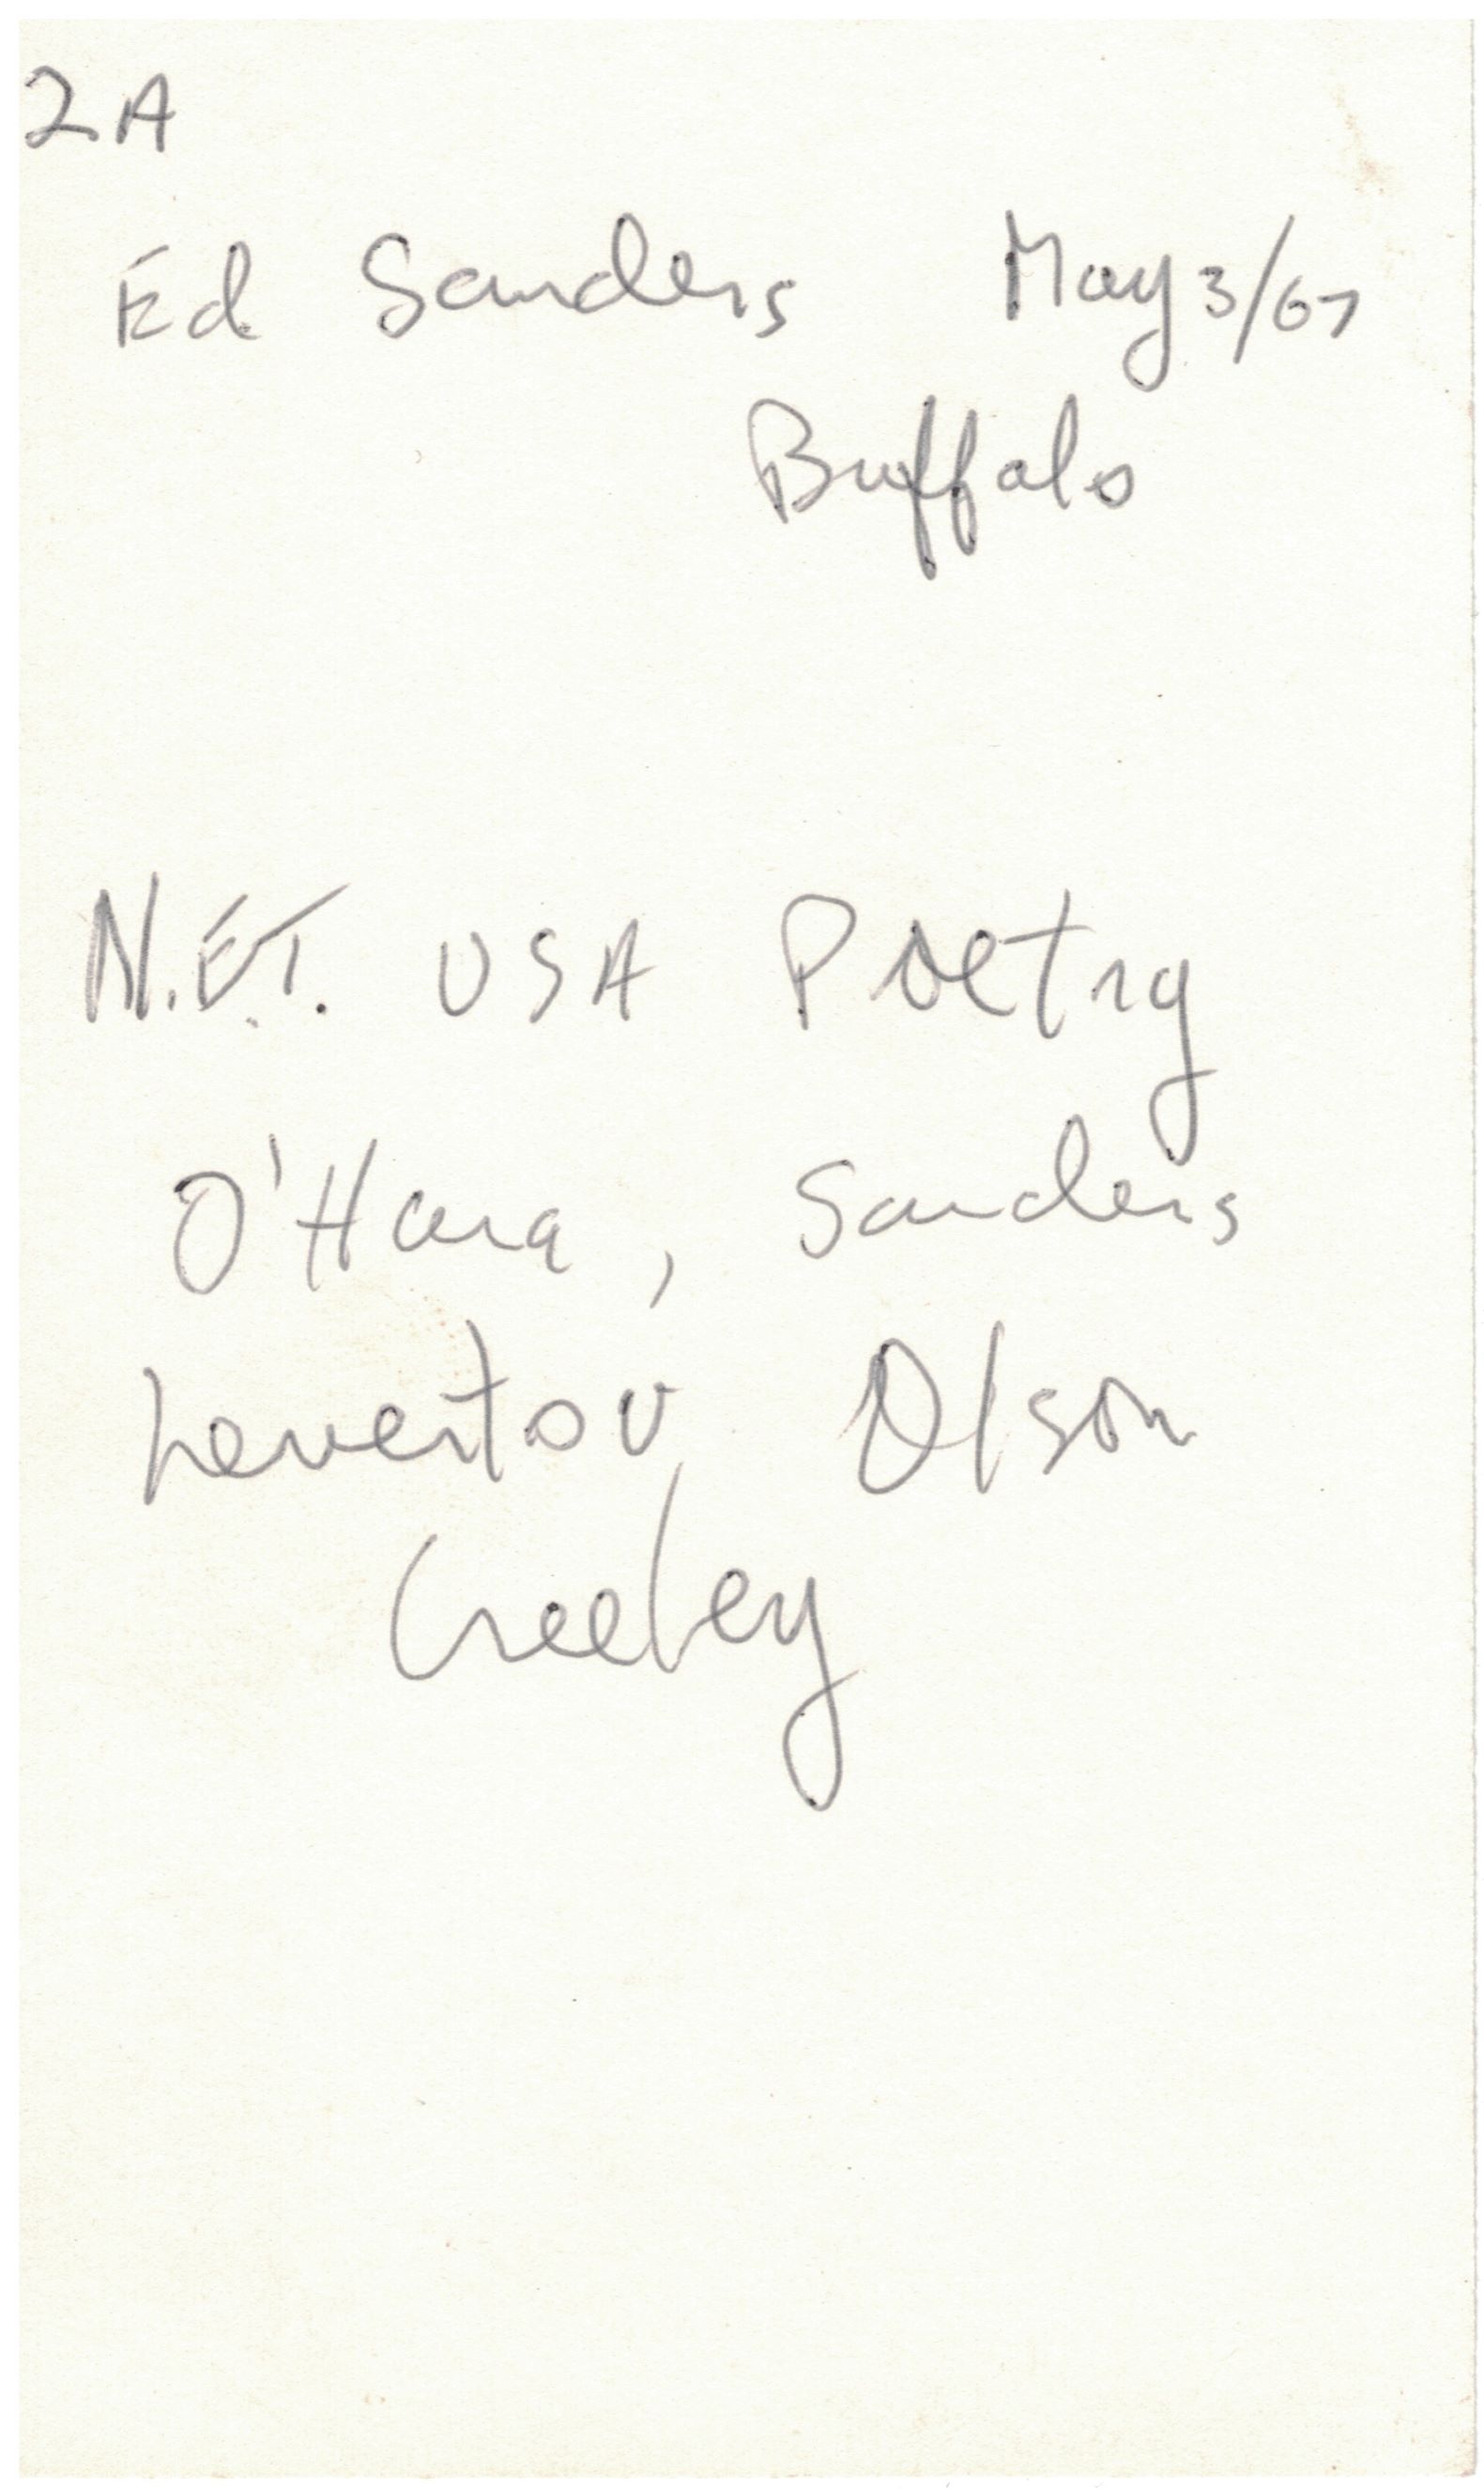 2A
Ed Sanders May 3/67
Buffalo
N.E.T. USA Poetry
O'Hara, Sanders
Levertov Olson
Creeley